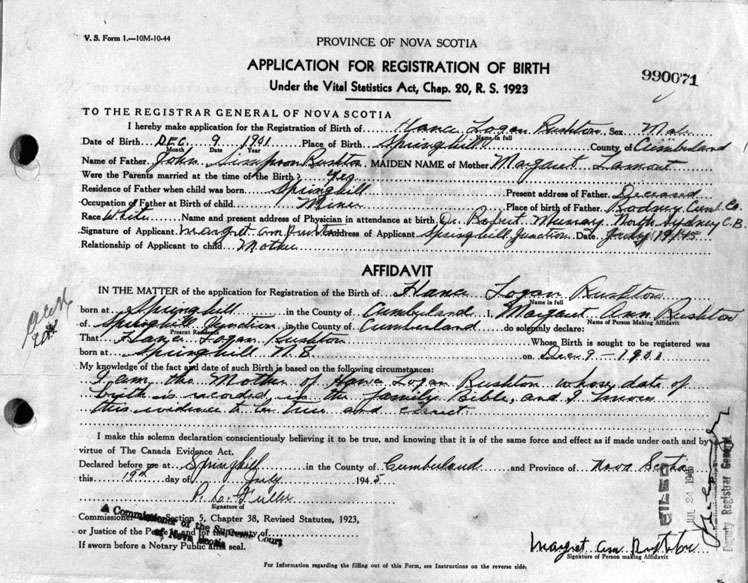 V. S. Form 1.—10M-10-44
PROVINCE OF NOVA SCOTIA
APPLICATION FOR REGISTRATION OF BIRTH
990071
Under the Vital Statistics Act, Chap. 20, R. S. 1923
TO THE REGISTRAR GENERAL OF NOVA SCOTIA
I hereby make application for the Registration of Birth of Hance Logan Rushton Sex Male
Name in full
Date of Birth DEC. 9 1901 Place of Birth Springhill County of Cumberland
Month Day Year
Name of Father John Simpson Rushton MAIDEN NAME of Mother Margaret Lamont
Were the Parents married at the time of the Birth? Yes
Residence of Father when child was born Springhill Present address of Father Deceased
Occupation of Father at Birth of child Miner Place of birth of Father Rodney Cumb. Co.
Race White Name and present address of Physician in attendance at birth Dr. Robert Murray North Sydney C.B.
Signature of Applicant Margret Ann Rushton Address of Applicant Springhill Junction Date July 19/45
Relationship of Applicant to child Mother
AFFIDAVIT
IN THE MATTER of the application for Registration of the Birth of Hance Logan Rushton
Name in full
born at Springhill in the County of Cumberland I, Margaret Ann Rushton
Name of Person Making Affidavit
of Springhill Junction in the County of Cumberland do solemnly declare:
Present Residence
That Hance Logan Rushton Whose Birth is sought to be registered was
born at Springhill N.S. on Dec. 9 - 1901
My knowledge of the fact and date of such Birth is based on the following circumstances:
I am the Mother of Hance Logan Rushton whose date of
birth is recorded in the family Bible, and I know
this evidence to be true and correct
I make this solemn declaration conscientiously believing it to be true, and knowing that it is of the same force and effect as if made under oath and by
virtue of The Canada Evidence Act.
Declared before me at Springhill in the County of Cumberland and Province of Nova Scotia
this 19th day of July 1945
Signature of
A Commissioner of the Supreme Court
of Nova Scotia
Commissioner Section 5, Chapter 38, Revised Statutes, 1923,
or Justice of the Peace and for the
If sworn before a Notary Public affix seal.
FILED
JUL 24 1945
Deputy Registrar General
Margret Ann Rushton
Signature of Person making Affidavit
For Information regarding the filling out of this Form, see Instructions on the reverse side.